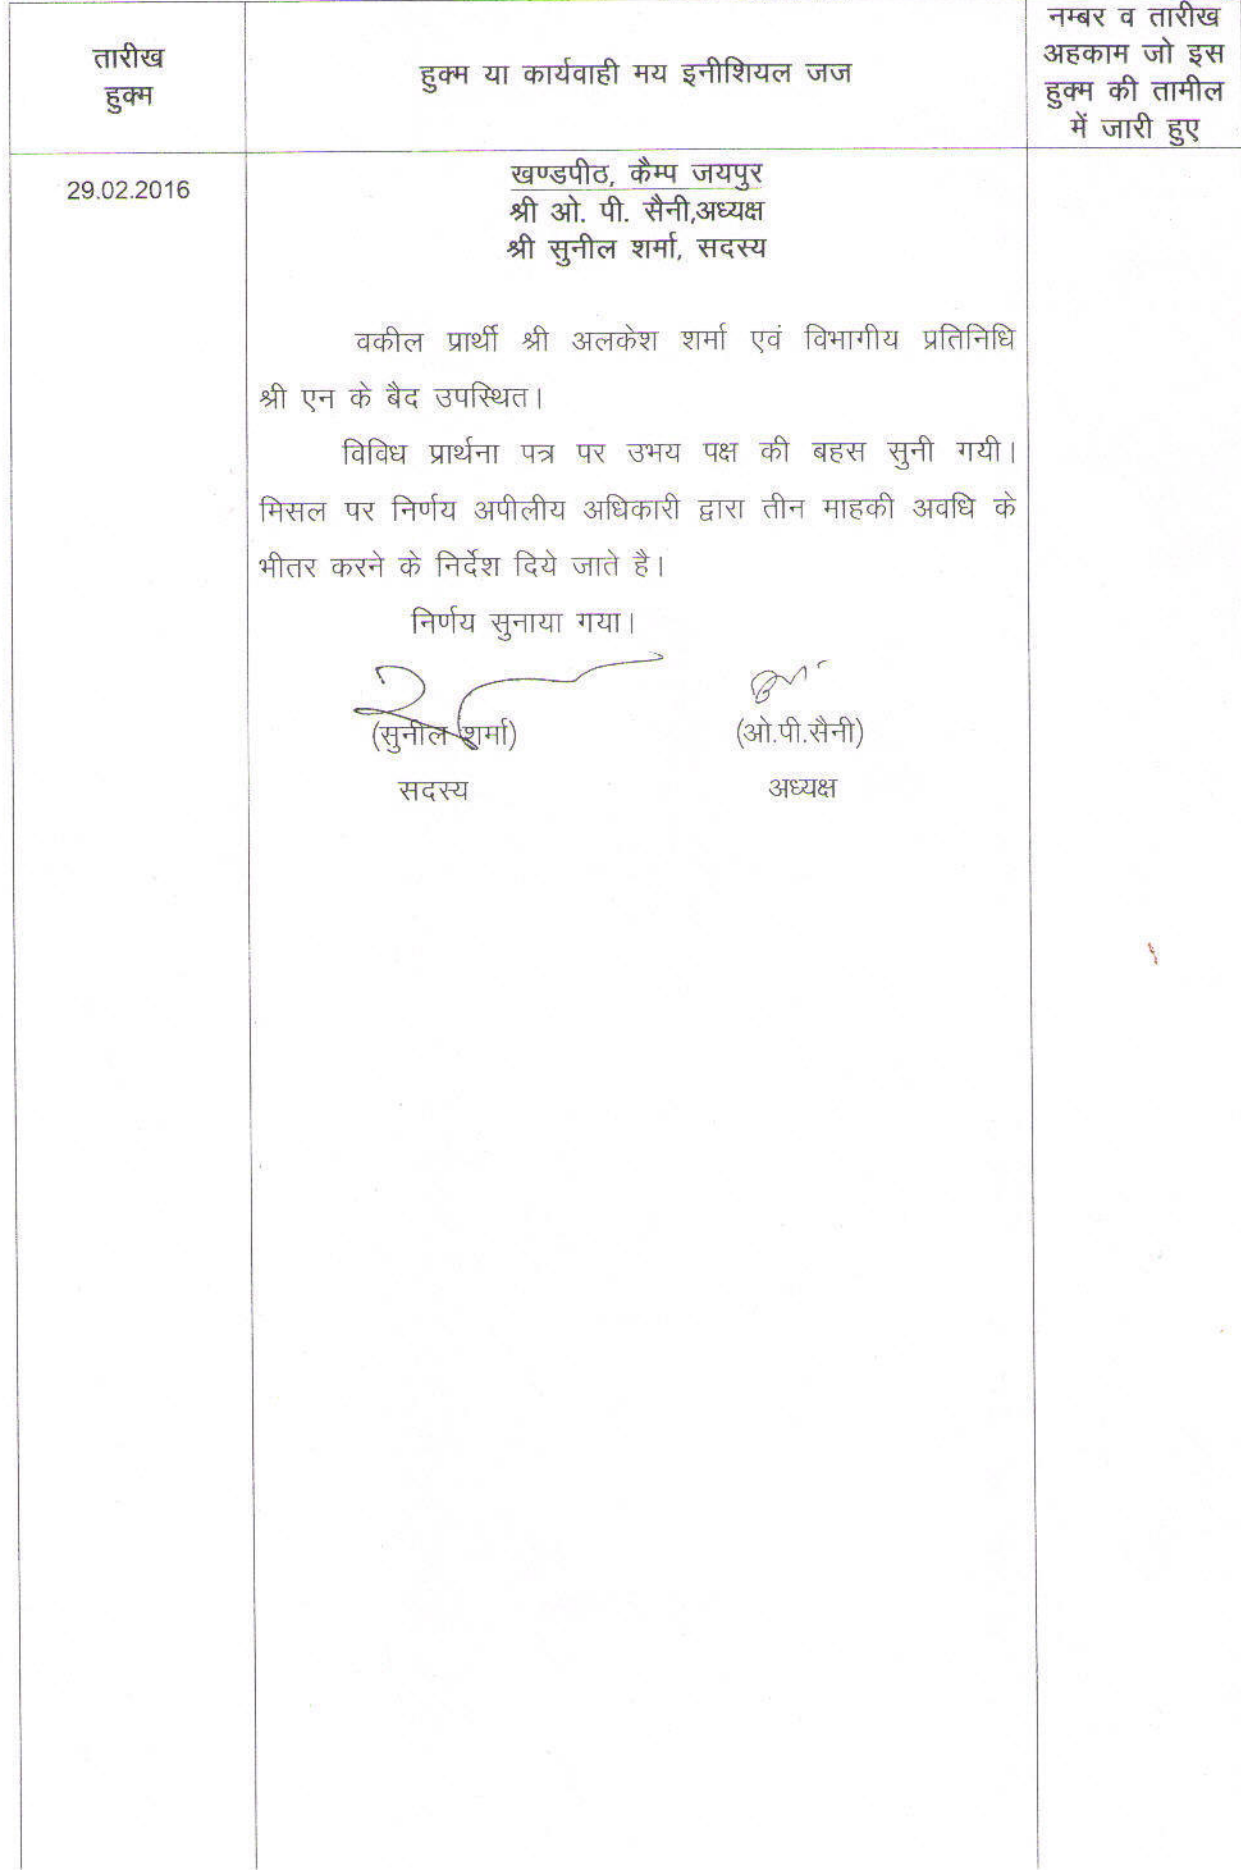 तारीख
हुक्म
हुक्म या कार्यवाही मय इनीशियल जज
नम्बर व तारीख
अहकाम जो इस
हुक्म की तामील
में जारी हुए
29.02.2016
खण्डपीठ, कैम्प जयपुर
श्री ओ. पी. सैनी,अध्यक्ष
श्री सुनील शर्मा, सदस्य
वकील प्रार्थी श्री अलकेश शर्मा एवं विभागीय प्रतिनिधि
श्री एन के बैद उपस्थित।
विविध प्रार्थना पत्र पर उभय पक्ष की बहस सुनी गयी।
मिसल पर निर्णय अपीलीय अधिकारी द्वारा तीन माहकी अवधि के
भीतर करने के निर्देश दिये जाते है।
निर्णय सुनाया गया।
(सुनील शर्मा)
(ओ.पी.सैनी)
सदस्य
अध्यक्ष